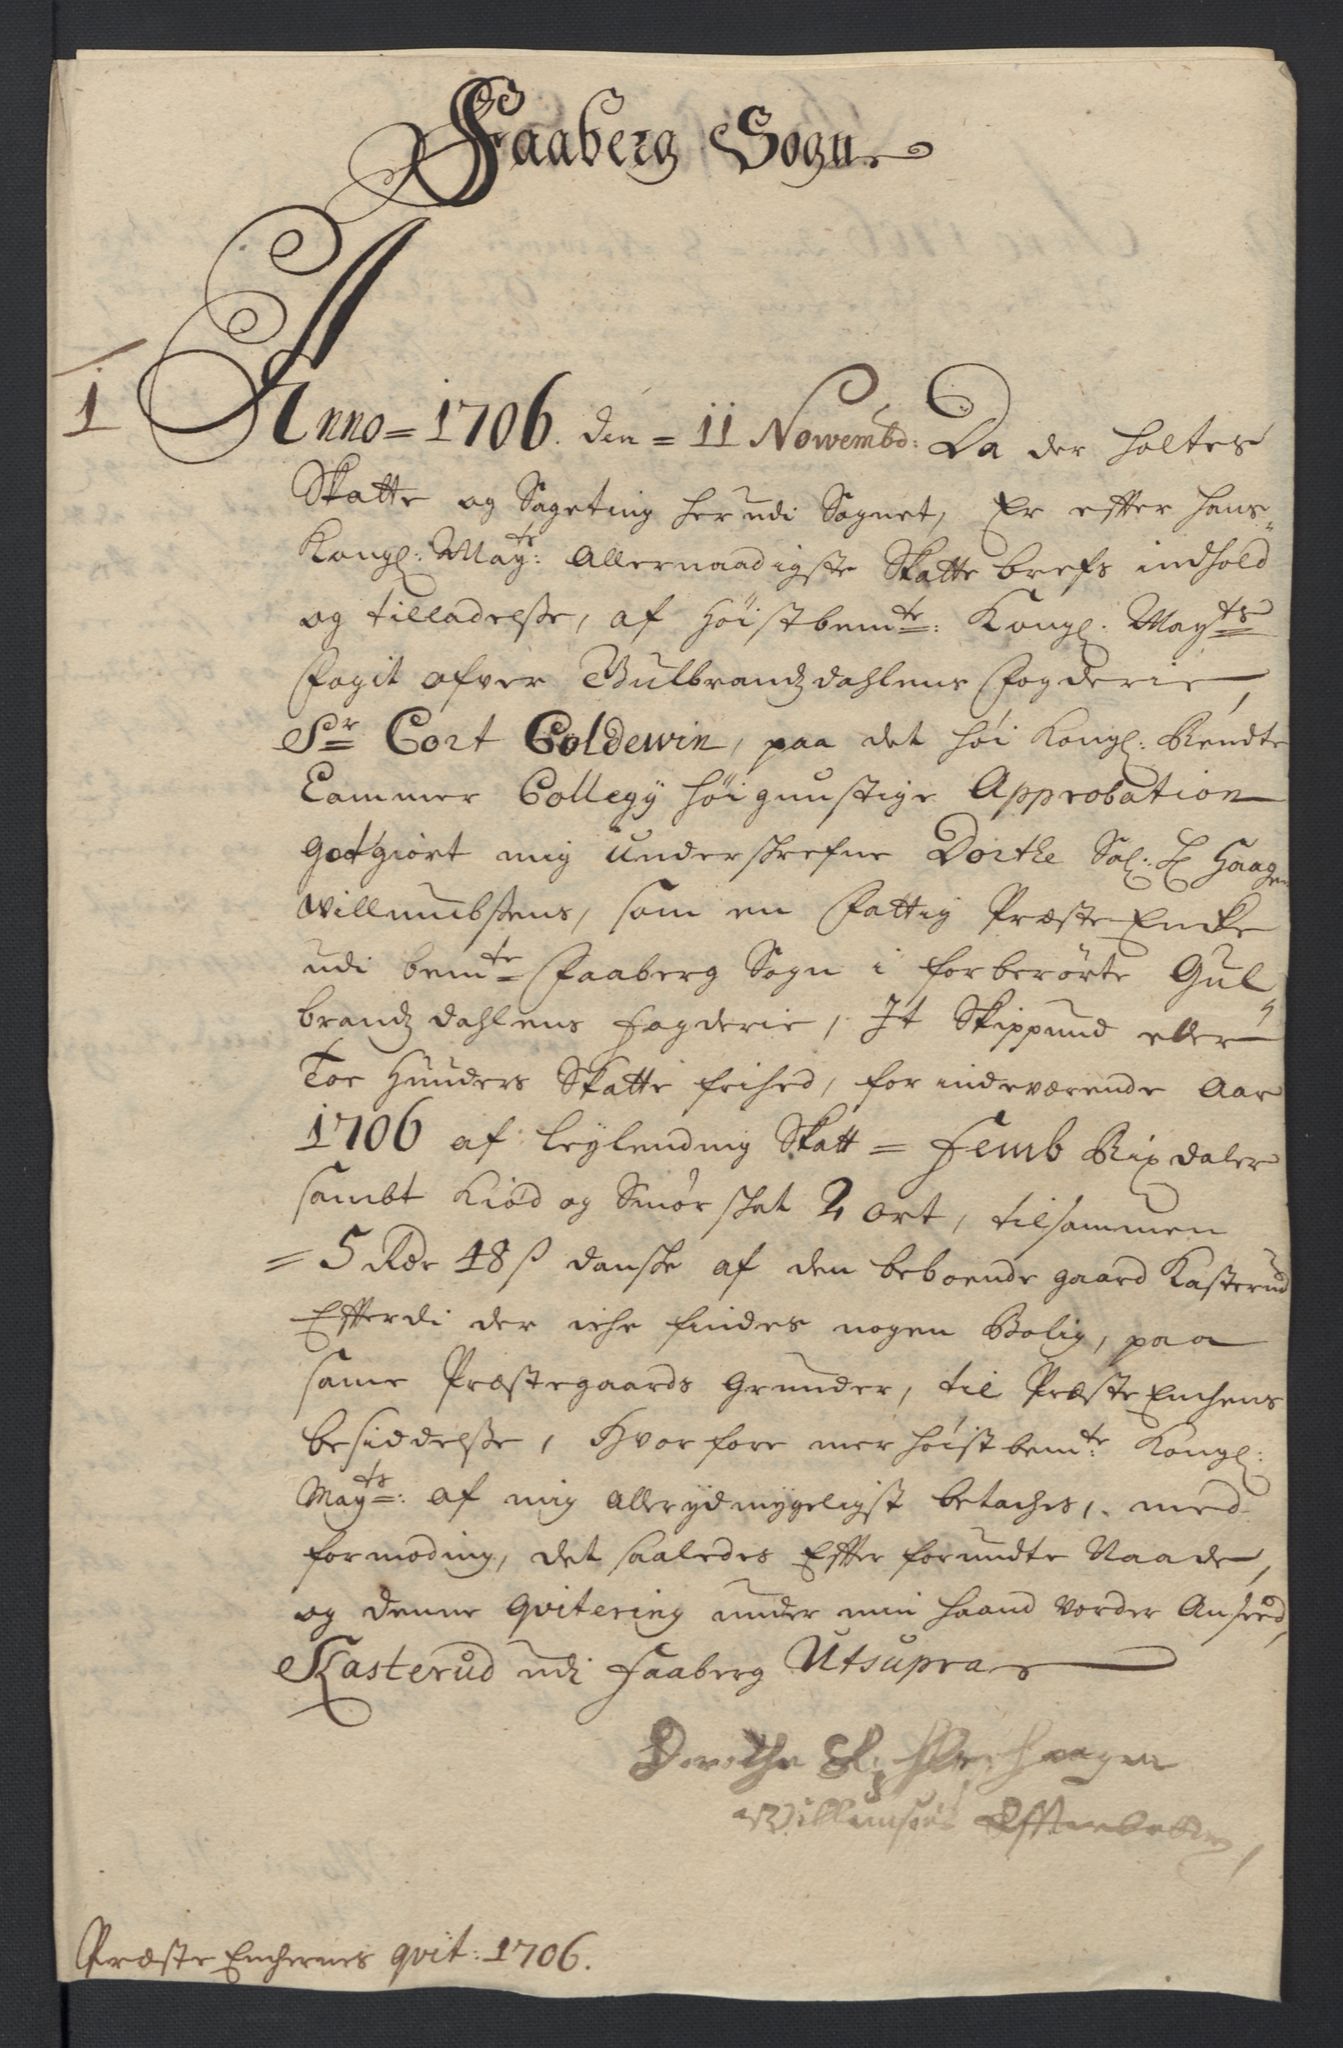 Faaberg Sogn
1
Anno = 1706. den = 11 Nowembd: Da der holtes
Skatte og Sageting her udi Sognet, Er efter hans
Kongl: Mayts: Allernaadigste Skatte brefs indhold
og tilladelsse, af Høistbemte: Kongl. Mayts
Fogit ofver Gulbrandzdahlens Fogderie,
Sr Cort Coldewin, paa det høi Kongl: Rendte
Cammer Collegy høigunstige Approbation
Gotgiort mig underskrefne Dorthe Sal: H Haagen
Willumbsens, som en Fattig Præste Encke
udi bemte Faaberg Sogn i forberørte Gul
brandz dahlens fogderie, It Skippund eller
Toe Hunders Skatte frihed, for indeværende Aar
1706 af Leylending Skatt = Femb Rixdaler
sambt Kiød og Smør skat 2 ort, tilsammen
= 5 Rdr 48 ß danske af den beboende gaard Kasterud
Efterdi der iche findes nogen Bolig, paa
same Præstegaards Grunder, til Præste Enchens
besiddelsse, Hvorfore mer høistbemte Kongl:
Mayts: af mig allerydmygeligst betaches, med
formoding, det saaledes Efter forundte Naade,
og denne qvitering under min haand vorder Anseed,
Kasterud udi Faaberg Utsupra
Dorothe Sl: Her Haagen
Willumsens Efterlatte
Præste Enchernes qvit: 1706.